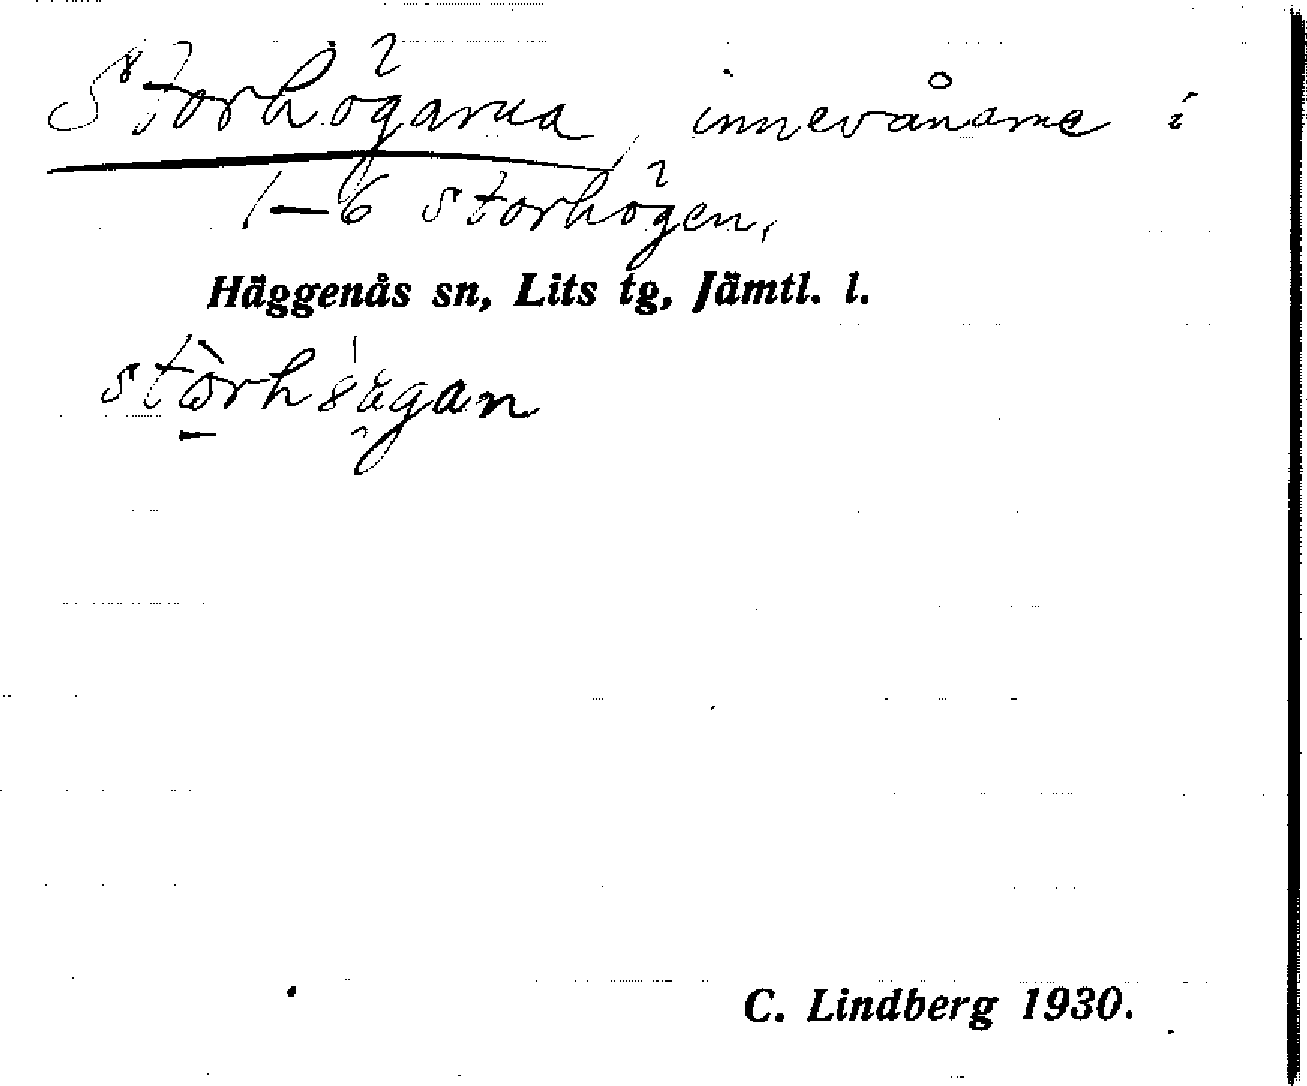 Storhögarna, innevånarne i
1–6 Storhögen,
Häggenås sn, Lits tg, Jämtl. l.
C. Lindberg 1930.